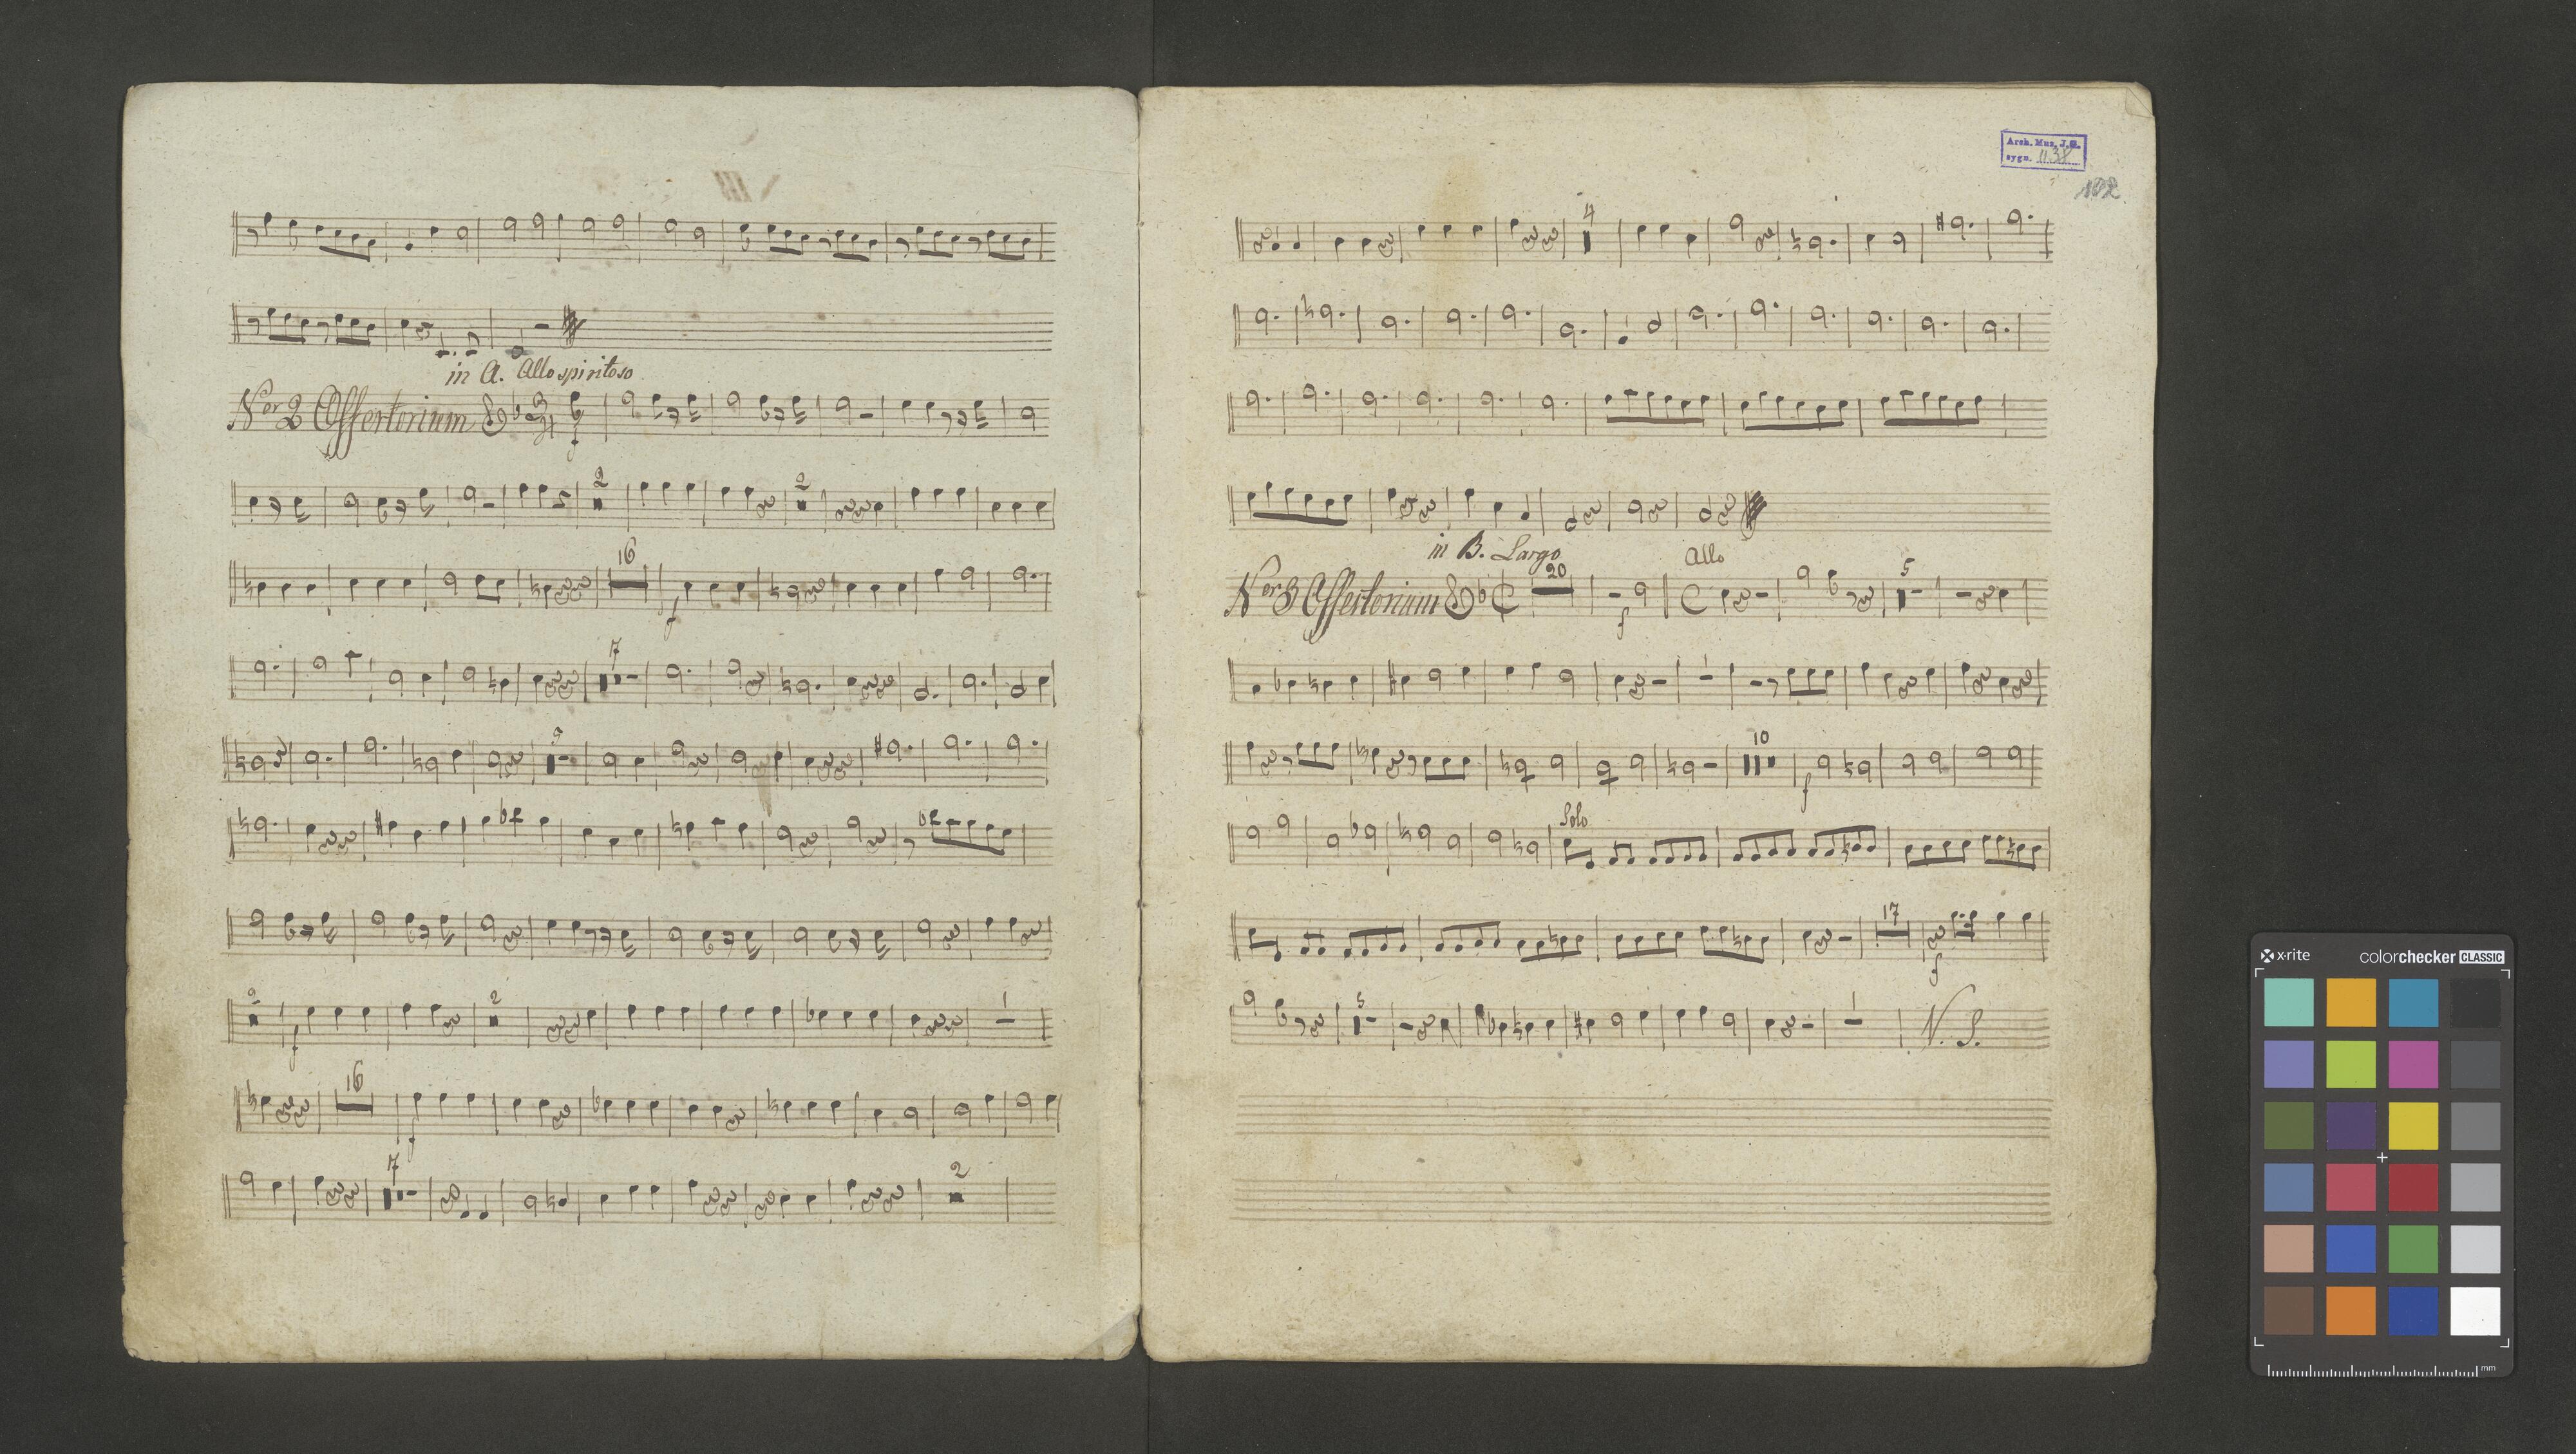 in A. Allo spiritoso
Nor 2 Offertorium
f
2
2
16
f
17
2
f
2
1
16
f
17
2
Arch. Mus. J.G.
sygn. 1138
102
4
in B. Largo
Allo
Nor 3 Offertorium
20
5
f
10
f
Solo
17
f
5
1
V. S.
x-rite
colorchecker CLASSIC
mm